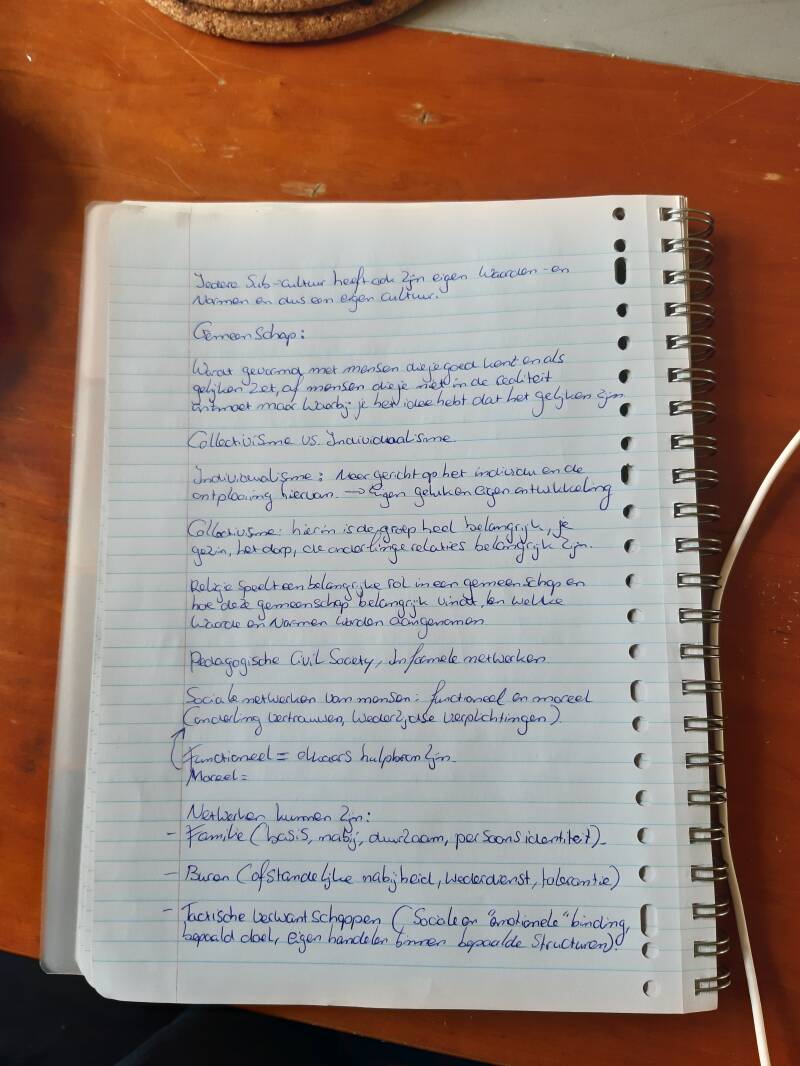 Iedere Sub-cultuur heeft ook zijn eigen Waarden -en
Normen en dus een eigen cultuur.
Gemeenschap:
Wordt gevormd met mensen die je goed kent en als
gelijken ziet, of mensen die je niet in de realiteit
ontmoet maar waarbij je het idee hebt dat het gelijken zijn.
Collectivisme vs. Individualisme
Individualisme: Meer gericht op het individu en de
ontplooing hiervan. → Eigen geluk en eigen ontwikkeling
Collectivisme: hierin is de groep heel belangrijk, je
gezin, het dorp, de onderlinge relaties belangrijk zijn.
Religie speelt een belangrijke rol in een gemeenschap en
hoe deze gemeenschap belangrijk vindt, en welke
Waarde en Normen worden aangenomen
Pedagogische Civil Society, Informele netwerken
Sociale netwerken van mensen: functioneel en moreel
(onderling vertrouwen, Wederzijdse verplichtingen)
Functioneel = elkaars hulpbron zijn.
Moreel =
Netwerken kunnen zijn:
- Familie (basis, nabij, duurzaam, persoonsidentiteit).
- Buren (afstandelijke nabijheid, wederdienst, tolerantie)
- Tactische verwantschappen (Sociale en "emotionele" binding,
bepaald doel, eigen handelen binnen bepaalde structuren).